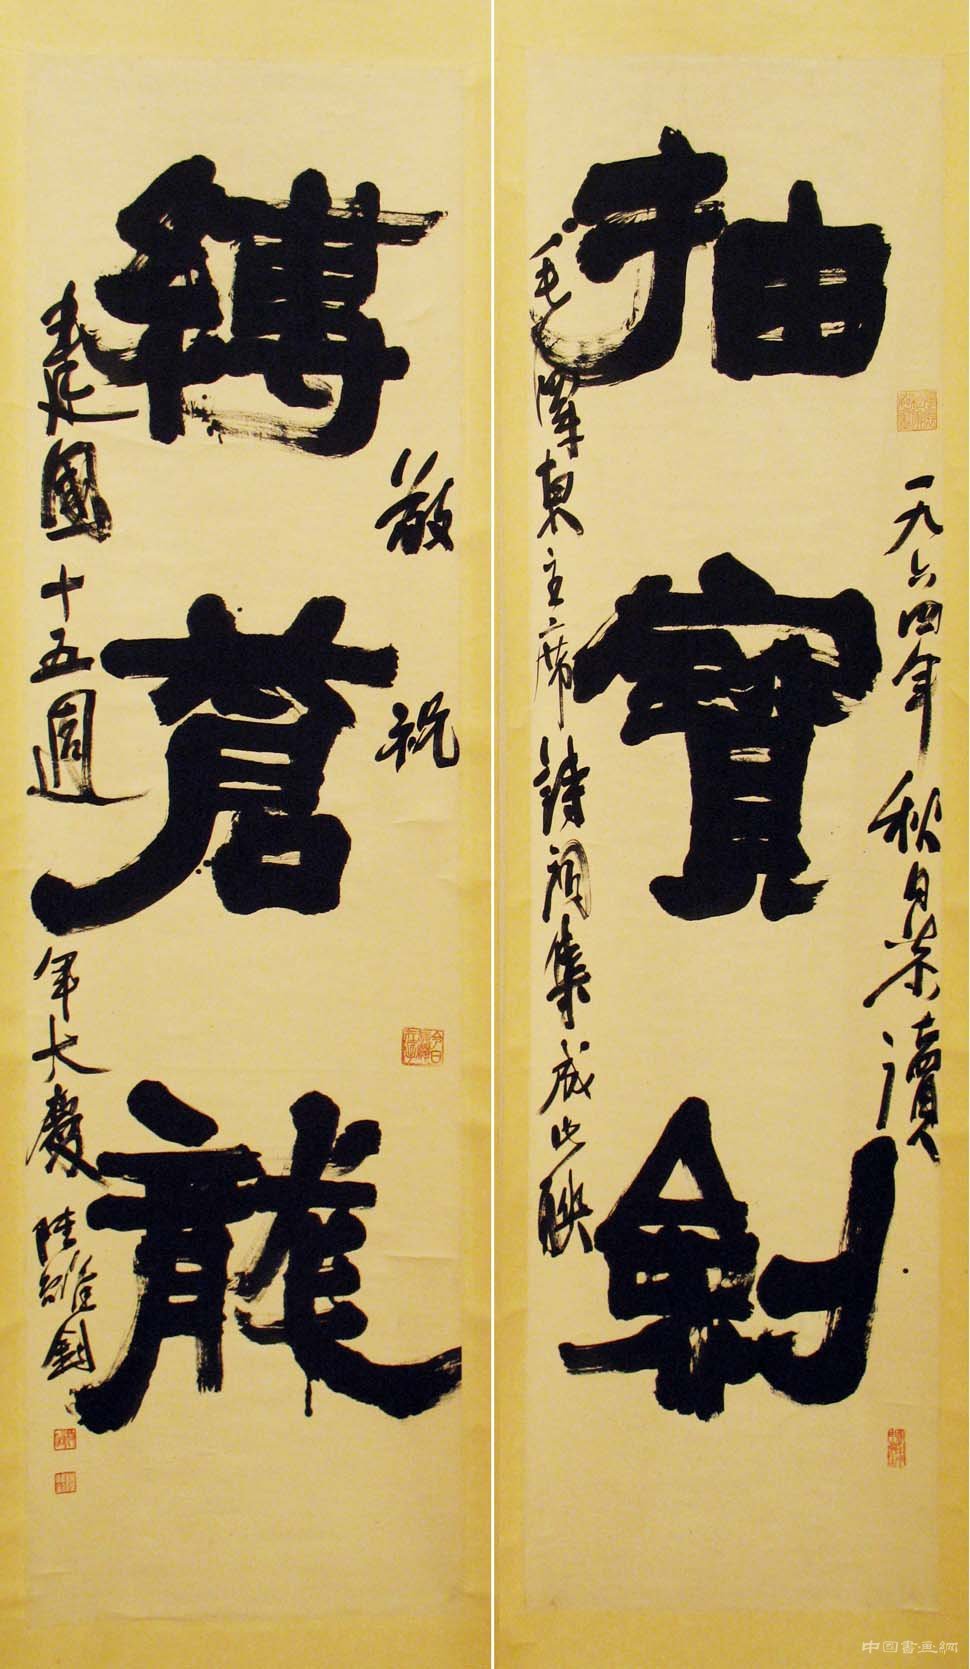 一九六四年秋日恭讀
抽寶劍
毛澤東主席詩詞集成此聯
敬祝
縛蒼龍
建國十五週年大慶陸維釗
中国書画網